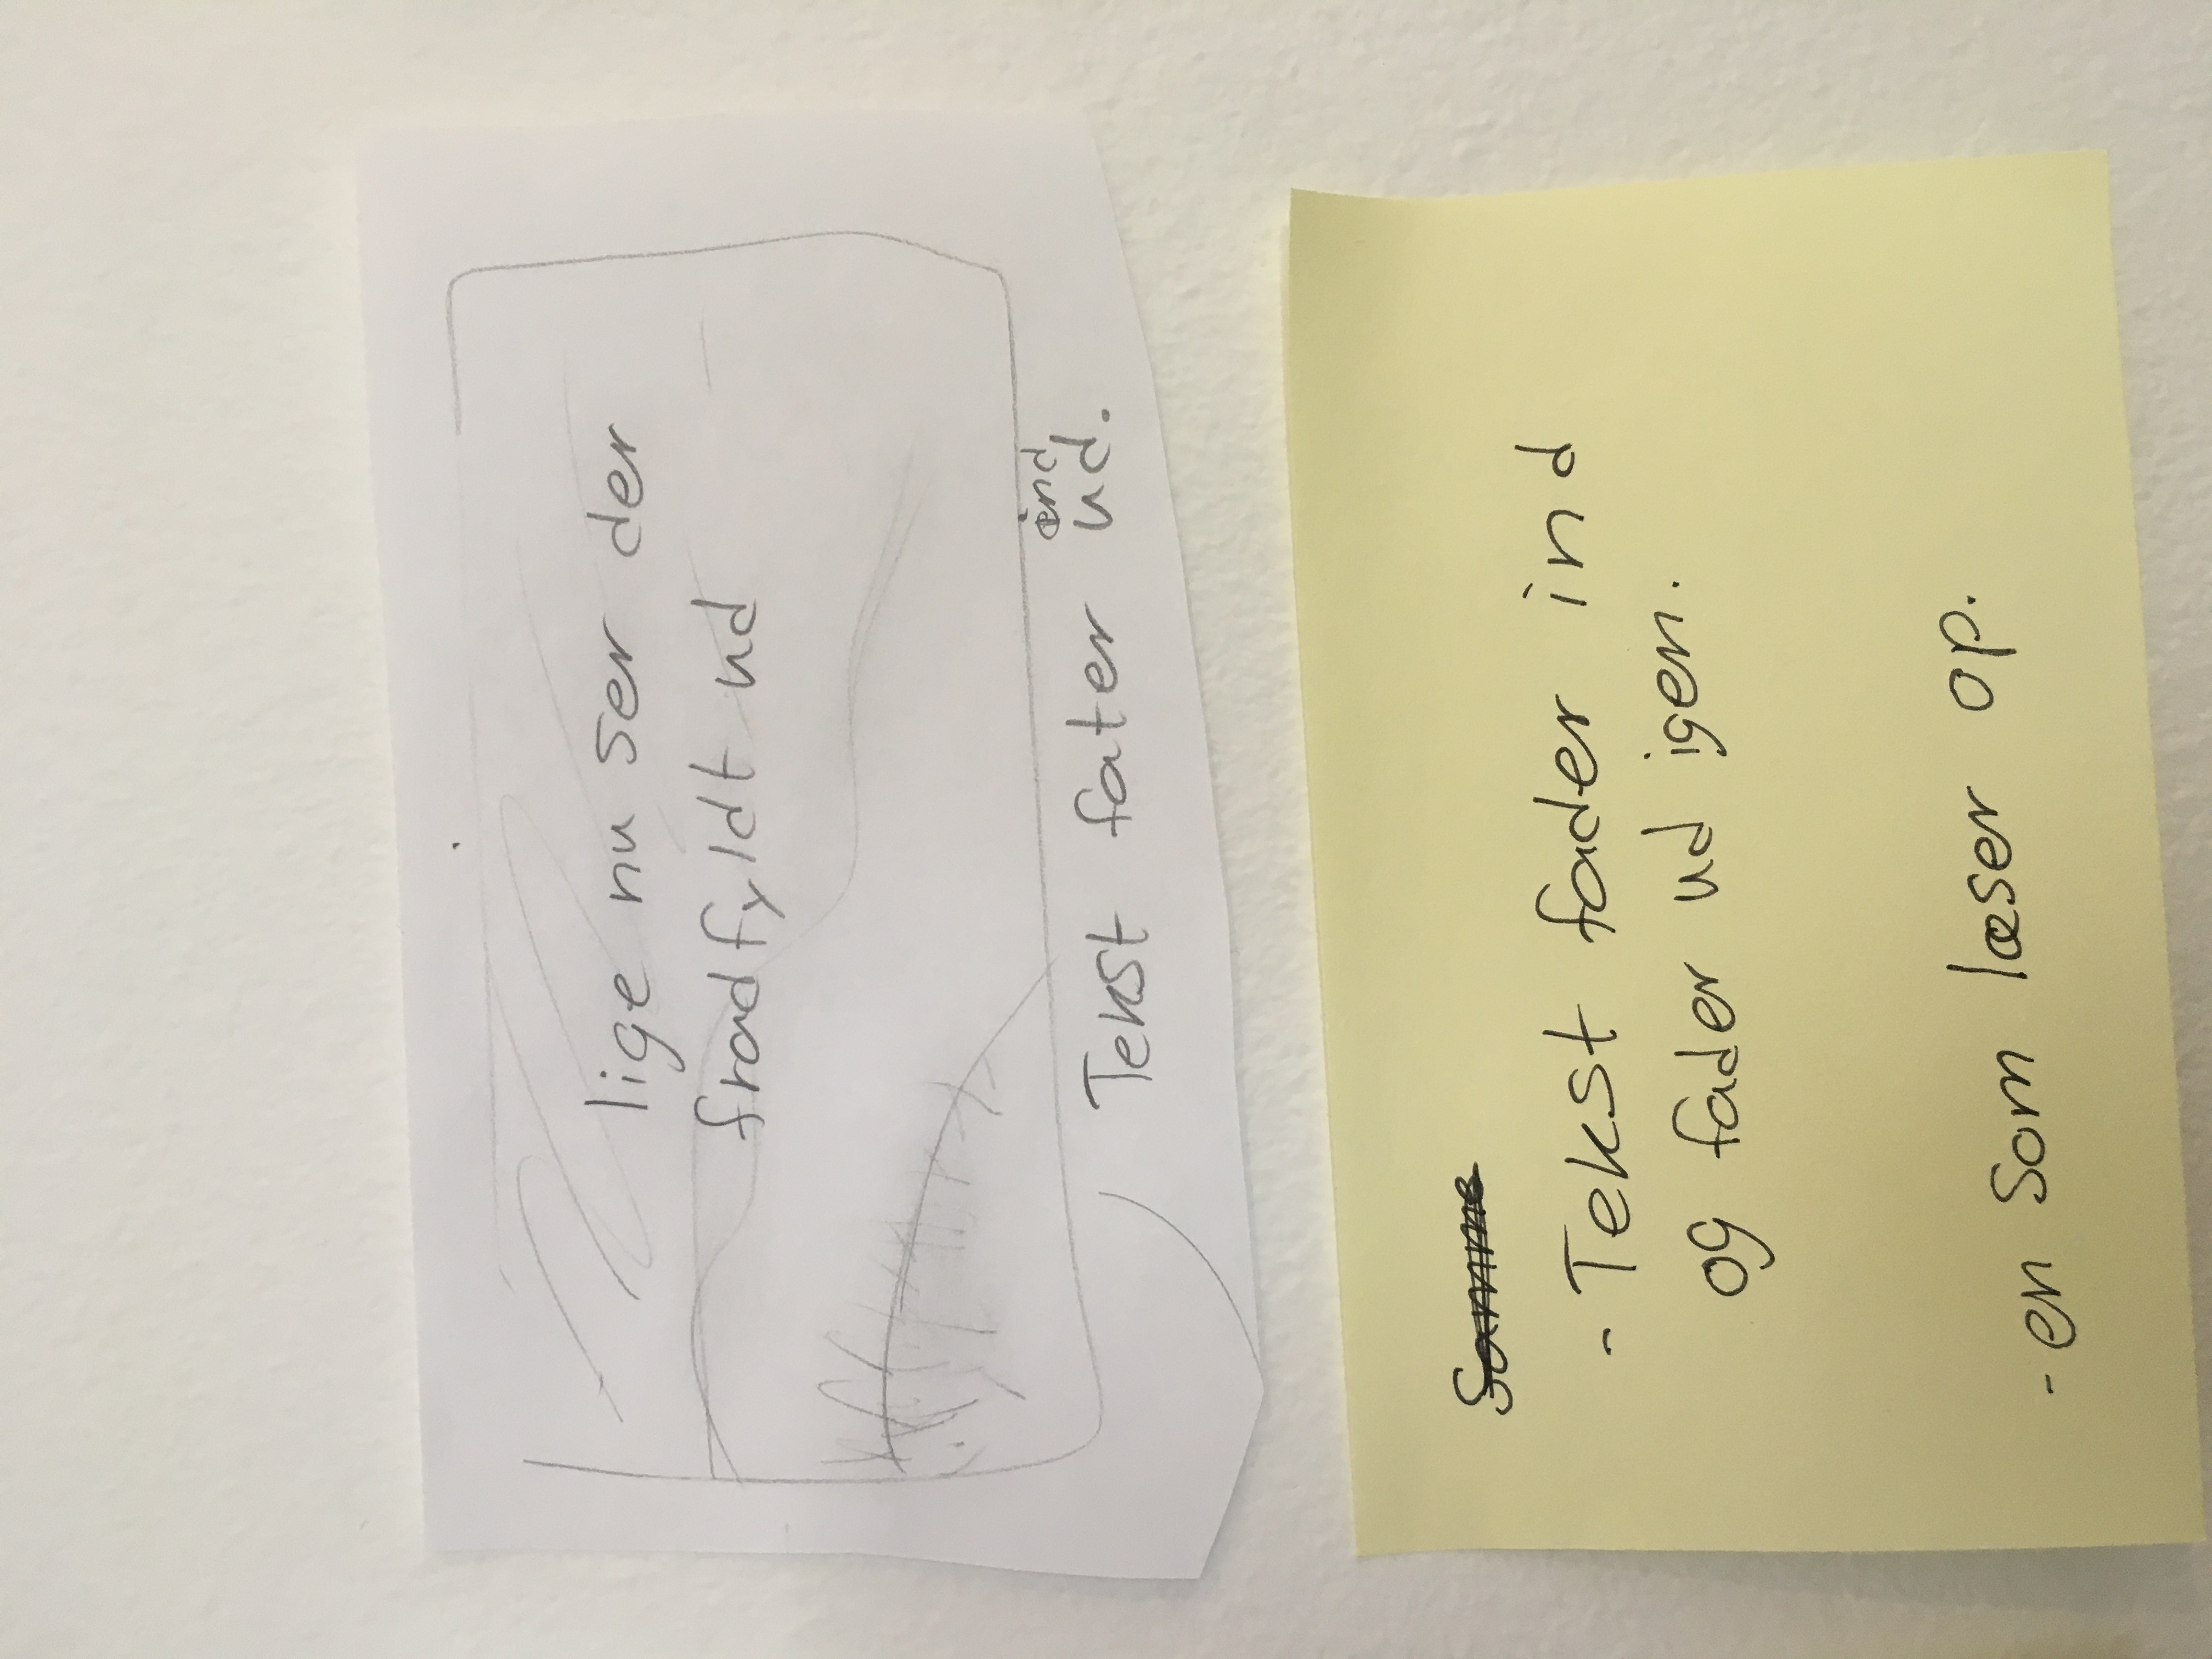 lige nu ser der
fradfyldt ud
ind
Tekst fater ud.
Samme
- Tekst fader ind
og fader ud igen.
- en som læser op.